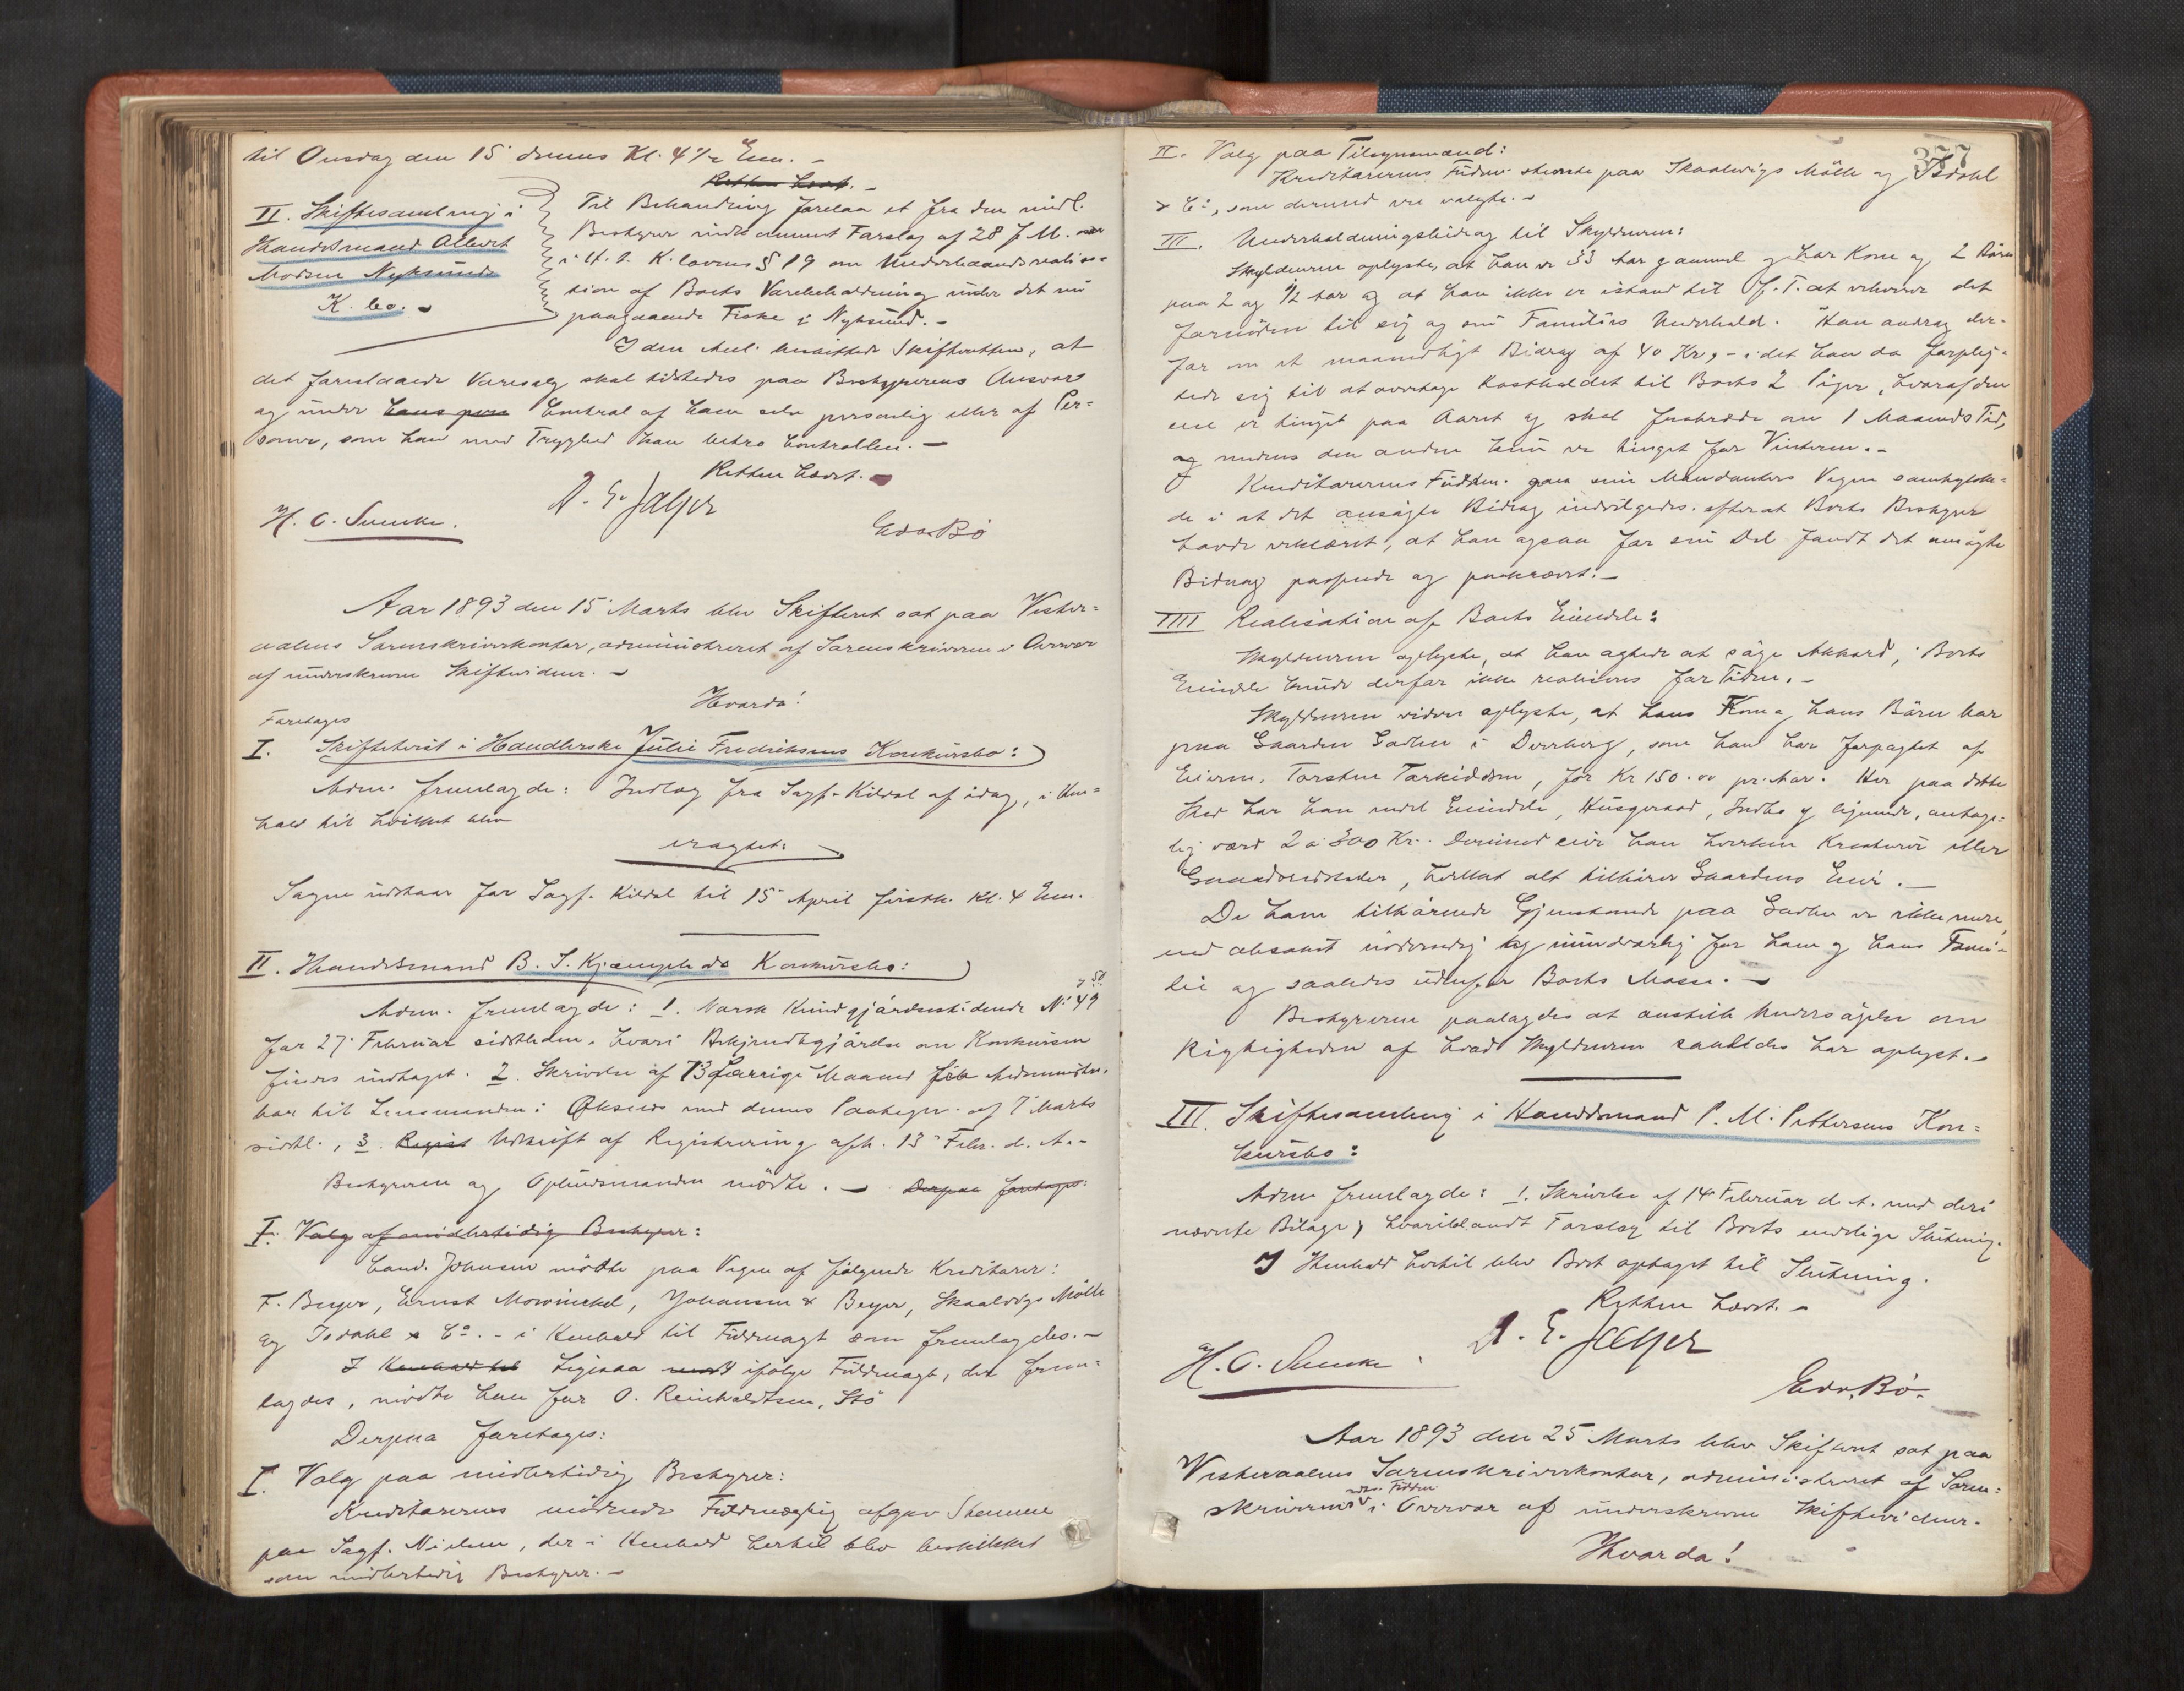 til Onsdag den 15 dennes Kl. 4 1/2 Em. -
Retten hævet. -
II. Skiftesamling i
Handelsmand Albert
Madsen Nyksunds
K. bo. -
Til Behandling forelaa et fra den midl.
Bestyrer indkommet Forslag af 28 f. M.
i H. t. K. lovens § 19 om Underhaandsrealisa-
tion af Boets Varebeholdning under det nu
paagaaende Fiske i Nyksund. -
I den Anl. besluttede Skifteretten, at
det foreslaaede Varesalg skal tilstedes paa Bestyrerens Ansvar
og under hans pers Control af ham selv personlig eller af Per-
soner, som han med Tryghed kan betro Controllen. -
Retten hævet. -
H. C. Suencke. A. E. Jæger
Edv. Bö
Aar 1893 den 15 Marts blev Skifteret sat paa Vester-
aalens Sorenskriverkontor, administreret af Sorenskriveren i Overvær
af underskrevne Skiftevidner. -
Hvorda!
Foretages
I. Skifteret i Handlerske Julie Fredriksens Konkursbo:
Adm. fremlagde: Indlæg fra Sagf. Kildal af idag, i Hen-
hold til hvilket blev
eragtet:
Sagen udstaar for Sagf. Kildal til 15 April førstk. Kl. 4 Em.
II. Handelsmand B. S. Kjæmpeheds Konkursbo:
Adm. fremlagde: 1. Norsk Kundgjørelsestidende No 49
for 27 Februar sidstleden, hvori Bekjendtgjørelse om Konkursen
findes indtaget. 2. Skrivelse af 13 forrige Maaned fra Administr.
her til Lensmanden i Øksnes med dennes Paategn. af 7 Marts
sidstl., 3. Regist Udskrift af Registrering afh. 13 Febr. d. A. -
Bestyreren og Opbudsmanden mödte. - Derpaa foretages:
I. Valg af midlertidig Bestyrer:
Cand. Johnsen mödte paa Vegne af fölgende Kreditorer:
F. Beyer, Ernst Mowinckel, Johansen & Beyer, Skaalvigs Mölle
og Isdahl & Co. - i Henhold til Fuldmagt som fremlagdes. -
I Henhold til Ligesaa ifölge Fuldmagt, der frem-
lagdes, mödte han for O. Reinholdtsen, Stö
Derpaa foretages:
I. Valg paa midlertidig Bestyrer:
Kreditorernes mödende Fuldmægtig afgav Stemme
paa Sagf. Nielsen, der i Henhold hertil blev beskikket
som midlertidig Bestyrer. -
377
II. Valg paa Tilsynsmænd:
Kreditorernes Fuldm. stemte paa Skaalvigs Mölle og Isdahl
& Co, som dermed ere valgte. -
III. Underholdningsbidrag til Skyldneren:
Skyldneren oplyste, at han er 33 Aar gammel og har Kone og 2 Börn
paa 2 og 1/2 Aar og at han ikke er istand til f. T. at erhverve det
fornödne til sig og sin Families Underhold. Han androg der-
for om et maanedligt Bidrag af 40 Kr, - idet han da forplig-
tede sig til at overtage Kostholdet til Boets 2 Piger, hvoraf den
ene er tinget paa Aaret og skal fratræde om 1 Maaneds Tid,
og medens den anden kun er tinget for Vinteren. -
Kreditorernes Fuldm. paa sine Mandanters Vegne samtykke-
de i at det ansögte Bidrag indvilgedes, efterat Boets Bestyrer
havde erklæret, at han ogsaa for sin Del fandt det ansögte
Bidrag passende og paakrævet. -
IIII Realisation af Boets Eiendele:
Skyldneren oplyste, at han agtede at söge Akkord, Boets
Eiendele kunde derfor ikke realiseres for Tiden. -
Skyldneren videre oplyste, at hans Kone og hans Börn bor
paa Gaarden Gadben i Dverberg, som han har forpagtet af
Eieren, Torsten Torkildsen, for Kr 150.00 pr. Aar. Her paa dette
Sted har han endel Eiendele, Husgeraad, Indbo og lignende, antage-
lig værd 2 a 300 Kr. Derimod eier han hverken Kreaturer eller
Gaardsredskaber, hvilket alt tilhörer Gaardens Eier. -
De ham tilhörende Gjenstande paa er ikke mere
end absolut nödvendig og uundværlig for ham og hans Fami-
lie og saaledes udenfor Boets Masse. -
Bestyreren paalagdes at anstille Undersögelse om
Rigtigheden af hvad Skyldneren saaledes har oplyst. -
III. Skiftesamling i Handelsmand P. M. Pettersens Kon-
kursbo:
Adm fremlagde: 1. Skrivelse af 14 Februar d. A. med deri
nævnte Bilage, hvoriblandt Forslag til Boets endelige Slutning.
I Henhold hertil blev Boet optaget til Slutning.
Retten hævet. -
H. C. Suencke A. E. Jæger
Edv. Bö.
Aar 1893 den 25 Marts blev Skifteret sat paa
Vesteraalens Sorenskriverkontor, administreret af Soren-
skriverens edsv. Fuldm. i Overvær af underskrevne Skiftevidner.
Hvorda!